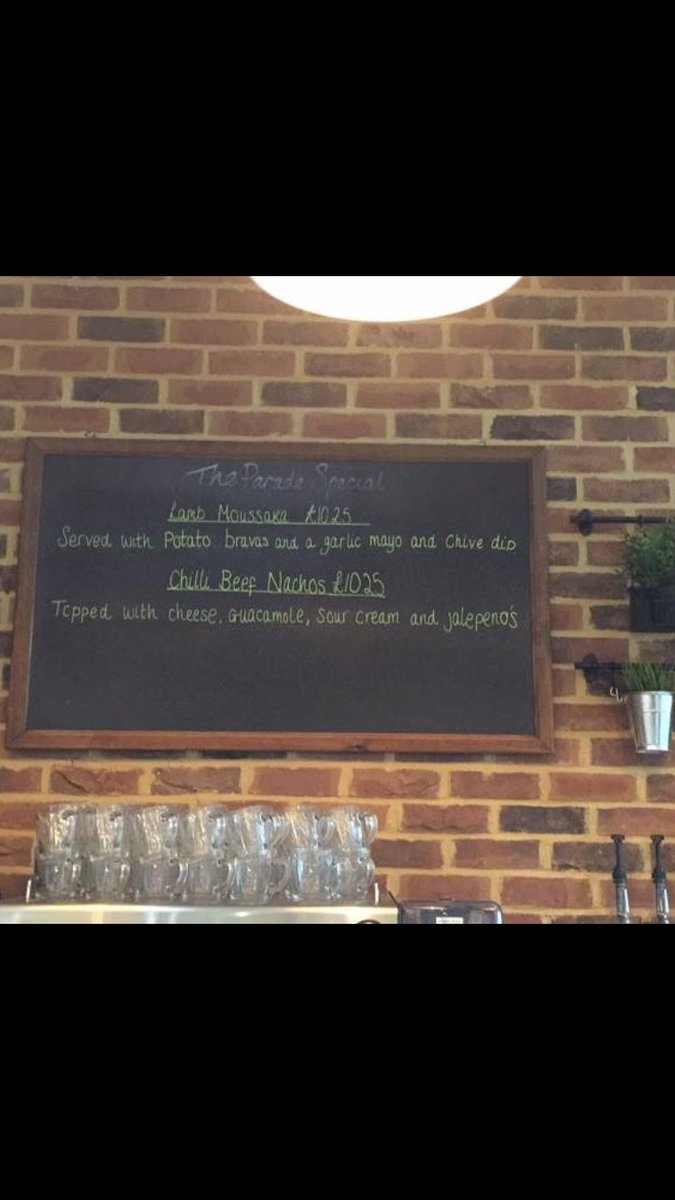 The Parade Special
Lamb Moussaka £10.25
Served with Potato bravas and a garlic mayo and Chive dip
Chilli Beef Nachos £10.25
Topped with cheese, Guacamole, Sour Cream and jalepeno's